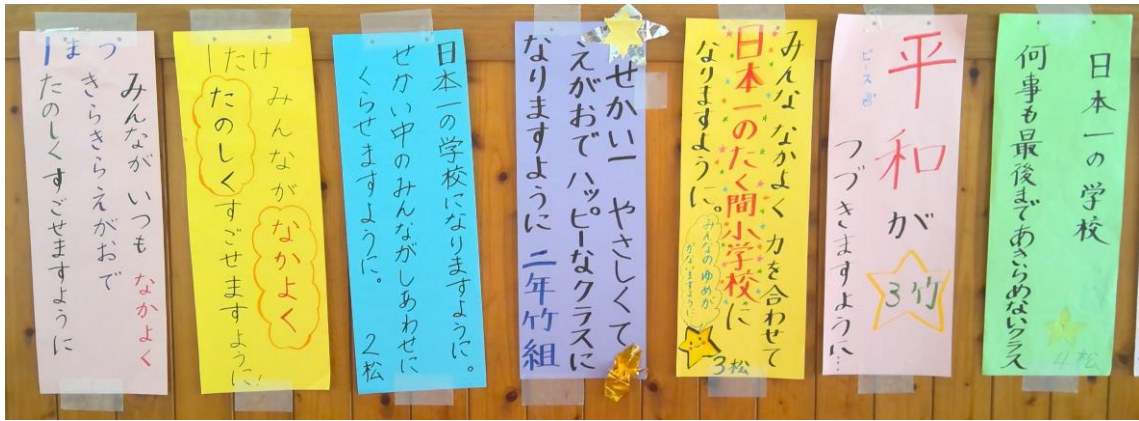 1まつ
みんなが いつも なかよく
きらきらえがおで
たのしくすごせますように
1たけ
みんながなかよく
たのしくすごせますように!
日本一の学校になりますように。
せかい中のみんながしあわせに
くらせますように。
2松
せかい一 やさしくて
えがおで ハッピーなクラスに
なりますように 二年竹組
みんな なかよく 力を合わせて
日本一のたく間小学校に
なりますように。
みんなのゆめが
かないますように
3松
平和が
ピース
つづきますように…
3竹
日本一の学校
何事も最後まであきらめないクラス
4松